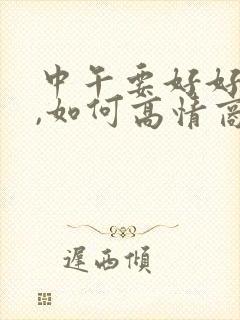 中午要好好
,如何高情商
遲西傾